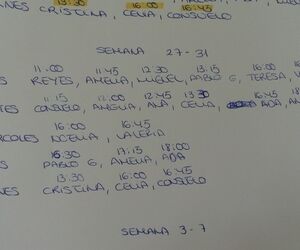 13:30 16:00 16:45
NES CRISTINA, CELIA, CONSUELO
SEMANA 27-31
11:00 11:45 12:30 13:15 16:00
REYES, AMELIA, PABLO G, TERESA,
11:15 12:00 12:45 13:30 16:45
TES CONSUELO, ANA, CELIA, ADA,
16:00 16:45
RCOLES NOELIA, VALERIA
16:30 17:15 18:00
S PABLO G, AMELIA, ADA
13:30 16:00 16:45
NES CRISTINA, CELIA, CONSUELO
SEMANA 3-7